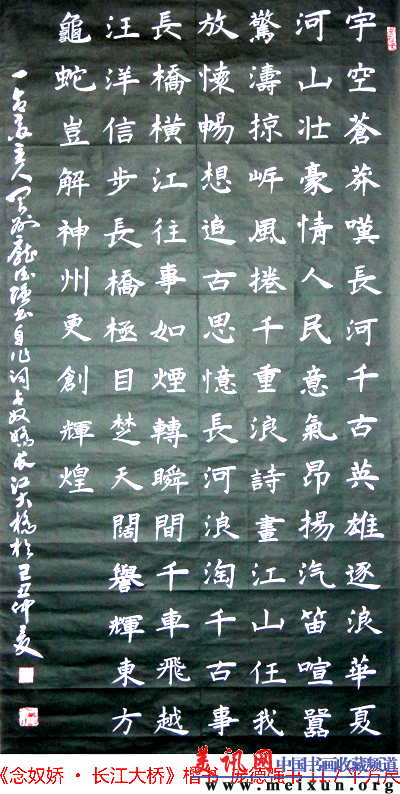 宇空蒼莽嘆長河千古英雄逐浪華夏
河山壯豪情人民意氣昂揚汽笛喧囂
驚濤掠岸風捲千重浪詩畫江山任我
放懷暢想追古思憶長河浪淘千古事
長橋橫江往事如煙轉瞬間千車飛越
汪洋信步長橋極目楚天闊譽輝東方
龜蛇豈解神州更創輝煌
主人龐德强书自作词念奴嬌长江大橋於己丑仲夏
美讯网 中国书画收藏频道
www.meixun.org
《念奴娇·长江大桥》楷书 庞德强书